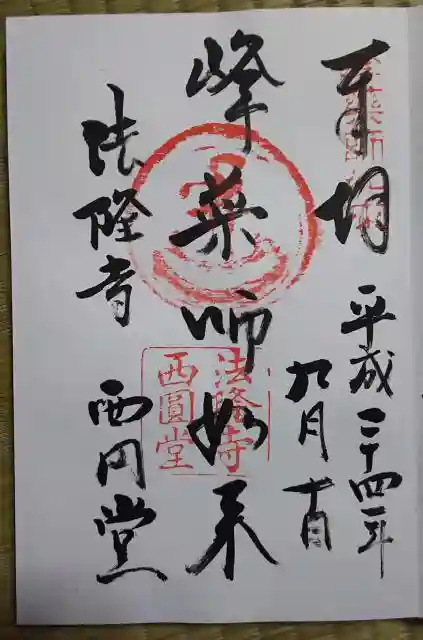 奉拝
平成二十四年
九月
峰薬師如来
法隆寺 西円堂
法隆寺
西圓堂